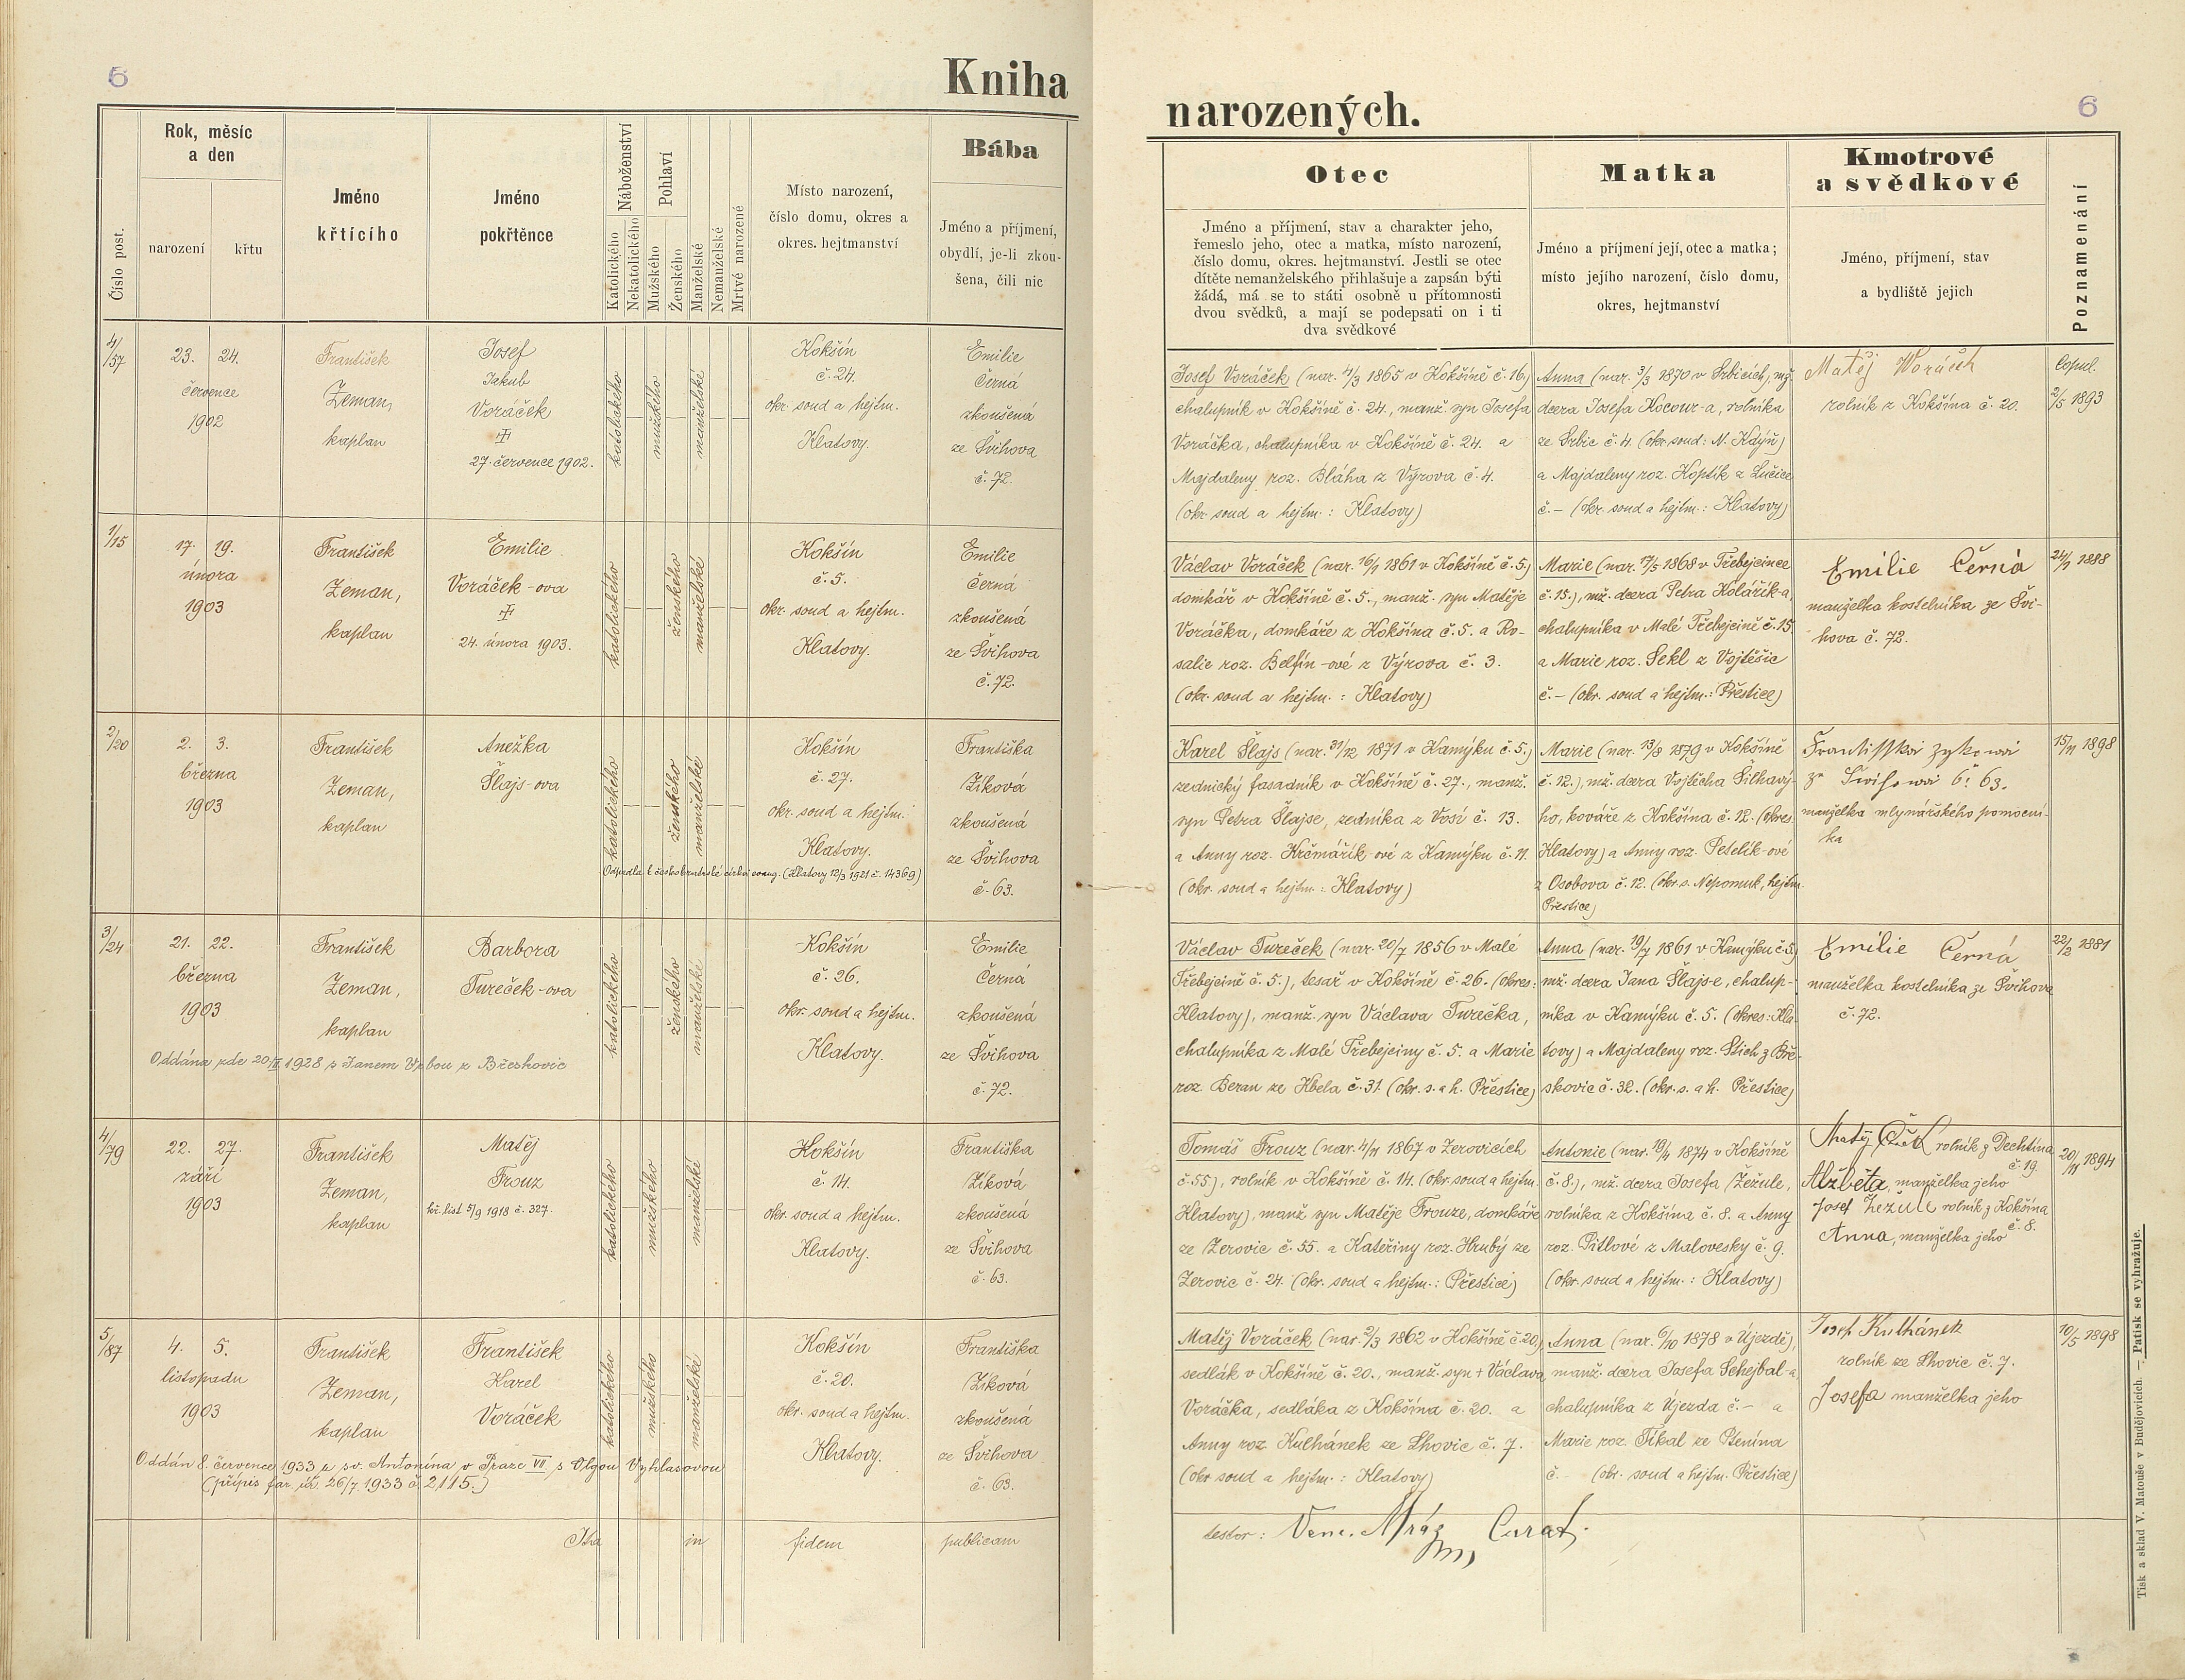 6
Kniha
Číslo post.
Rok, měsíc
a den
narození
křtu
Jméno
křtícího
Jméno
pokřtěnce
Náboženství
Katolického
Nekatolického
Pohlaví
Mužského
Ženského
Manželské
Nemanželské
Mrtvě narozené
Místo narození,
číslo domu, okres a
okres. hejtmanství
Bába
Jméno a příjmení,
obydlí, je-li zkou-
šena, čili nic
4/57
23. 24.
července
1902
František
Zeman,
kaplan
Josef
Jakub
Voráček
27. července 1902.
katolického
mužského
manželské
Kokšín
č. 24.
okr. soud a hejtm.
Klatovy.
Emilie
Černá
zkoušená
ze Švihova
č. 72.
1/15
17. 19.
února
1903
František
Zeman,
kaplan
Emilie
Voráček-ova
24. února 1903.
katolického
ženského
manželské
Kokšín
č. 5.
okr. soud a hejtm.
Klatovy.
Emilie
Černá
zkoušená
ze Švihova
č. 72.
2/20
2. 3.
března
1903
František
Zeman,
kaplan
Anežka
Šlajs-ova
katolického
ženského
manželské
Kokšín
č. 27.
okr. soud a hejtm.
Klatovy.
Odpadla k českobratrské církvi evang. (Klatovy 12/3 1921 č. 14369)
Františka
Zíková
zkoušená
ze Švihova
č. 63.
3/24
21. 22.
března
1903
František
Zeman,
kaplan
Barbora
Tureček-ova
Oddána zde 20/II 1928 s Janem bou z Břeskovic
katolického
ženského
manželské
Kokšín
č. 26.
okr. soud a hejtm.
Klatovy.
Emilie
Černá
zkoušená
ze Švihova
č. 72.
4/79
22. 27.
září
1903
František
Zeman,
kaplan
Matěj
Frouz
kř. list 5/9 1918 č. 327.
katolického
mužského
manželské
Kokšín
č. 14.
okr. soud a hejtm.
Klatovy.
Františka
Zíková
zkoušená
ze Švihova
č. 63.
5/87
4. 5.
listopadu
1903
František
Zeman,
kaplan
František
Karel
Voráček
Oddán 8. července 1933 u sv. Antonína v Praze VII s Olgou Vyhlasovou
(přípis far. úř. 26/7. 1933 č. 2115.)
katolického
mužského
manželské
Kokšín
č. 20.
okr. soud a hejtm.
Klatovy.
Františka
Zíková
zkoušená
ze Švihova
č. 63.
Ita in fidem publicam
narozených.
6
Otec
Jméno a příjmení, stav a charakter jeho,
řemeslo jeho, otec a matka, místo narození,
číslo domu, okres. hejtmanství. Jestli se otec
dítěte nemanželského přihlašuje a zapsán býti
žádá, má se to státi osobně u přítomnosti
dvou svědků, a mají se podepsati on i ti
dva svědkové
Matka
Jméno a příjmení její, otec a matka;
místo jejího narození, číslo domu,
okres, hejtmanství
Kmotrové
a svědkové
Jméno, příjmení, stav
a bydliště jejich
Poznamenání
Josef Voráček (nar. 4/3 1865 v Kokšíně č. 16.)
chalupník v Kokšíně č. 24., manž. syn Josefa
Voráčka, chalupníka v Kokšíně č. 24. a
Majdaleny roz. Bláha z Výrova č. 4.
(okr. soud a hejtm.: Klatovy)
Anna (nar. 3/3 1870 v Srbicích, mž.
dcera Josefa Kocour-a, rolníka
ze Srbic č. 4. (okr. soud: N. Kdýň)
a Majdaleny roz. Koptík z Lučice
č. – (okr. soud a hejtm.: Klatovy)
Matěj Woráčh
rolník z Kokšína č. 20.
Copul.
2/5 1893
Václav Voráček (nar. 16/1 1861 v Kokšíně č. 5.)
domkář v Kokšíně č. 5., manž. syn Matěje
Voráčka, domkáře z Kokšína č. 5. a Ro-
salie roz. Belfín-ové z Výrova č. 3.
(okr. soud a hejtm.: Klatovy)
Marie (nar. 17/5 1868 v Třebejcince
č. 15.), mž. dcera Petra Kolářík-a,
chalupníka v Malé Třebejcině č. 15
a Marie roz. Sekl z Vojtěšic
č. – (okr. soud a hejtm.: Přeštice)
Emilie Černá
manželka kostelníka ze Švi-
hova č. 72.
24/1 1888
Karel Šlajs (nar. 31/12 1871 v Kamýku č. 5.)
zednický fasadník v Kokšíně č. 27., manž.
syn Petra Šlajse, zedníka z Vosí č. 13.
a Anny roz. Krčmářík-ové z Kamýku č. 11.
(okr. soud a hejtm.: Klatovy)
Marie (nar. 13/8 1879 v Kokšíně
č. 12.), mž. dcera Vojtěcha Šilhavý-
ho, kováře z Kokšína č. 12. (okres.
Klatovy) a Anny roz. Petelík-ové
z Osobova č. 12. (okr. s. Nepomuk, hejtm.
Přeštice)
Frantisska zykowá
ze Swihowa č. 63.
manželka mlynářského pomocní-
ka
15/11 1898
Václav Tureček (nar. 20/7 1856 v Malé
Třebejcině č. 5.), tesař v Kokšíně č. 26. (okres:
Klatovy), manž. syn Václava Turečka,
chalupníka z Malé Třebejciny č. 5. a Marie
roz. Beran ze Kbela č. 31. (okr. s. a h. Přeštice)
Anna (nar. 19/7 1861 v Kamýku č. 5.)
mž. dcera Jana Šlajs-e, chalup-
níka v Kamýku č. 5. (okres: Kla-
tovy) a Majdaleny roz. Stich z Bře-
skovic č. 32. (okr. s. a h. Přeštice)
Emilie Černá
manželka kostelníka ze Švihova
č. 72.
22/2 1881
Tomáš Frouz (nar. 4/11 1867 v Žerovicích
č. 55), rolník v Kokšíně č. 14. (okr. soud a hejtm.
Klatovy), manž. syn Matěje Frouze, domkáře
ze Žerovic č. 55. a Kateřiny roz. Hrubý ze
Žerovic č. 24. (okr. soud a hejtm.: Přeštice)
Antonie (nar. 19/4 1874 v Kokšíně
č. 8.), mž. dcera Josefa Žežule,
rolníka z Kokšína č. 8. a Anny
roz. Pitlové z Malovesky č. 9.
(okr. soud a hejtm.: Klatovy)
rolník z Dechtína
č. 19.
Alžběta, manželka jeho
Josef Žežule rolník z Kokšína
č. 8.
Anna, manželka jeho
20/11 1894
Matěj Voráček (nar. 2/3 1862 v Kokšíně č. 20.)
sedlák v Kokšíně č. 20., manž. syn + Václava
Voráčka, sedláka z Kokšína č. 20. a
Anny roz. Kulhánek ze Lhovic č. 7.
(okr. soud a hejtm.: Klatovy)
Anna (nar. 6/10 1878 v Újezdě),
manž. dcera Josefa Schejbal-a
chalupníka z Újezda č. – a
Marie roz. Tikal ze Ptenína
č. – (okr. soud a hejtm. Přeštice)
Josef Kulhánek
rolník ze Lhovic č. 7.
Josefa manželka jeho
10/5 1898
testor: Venc. Mráz Curat.
Tisk a sklad V. Matouše v Budějovicích. — Patisk se vyhražuje.